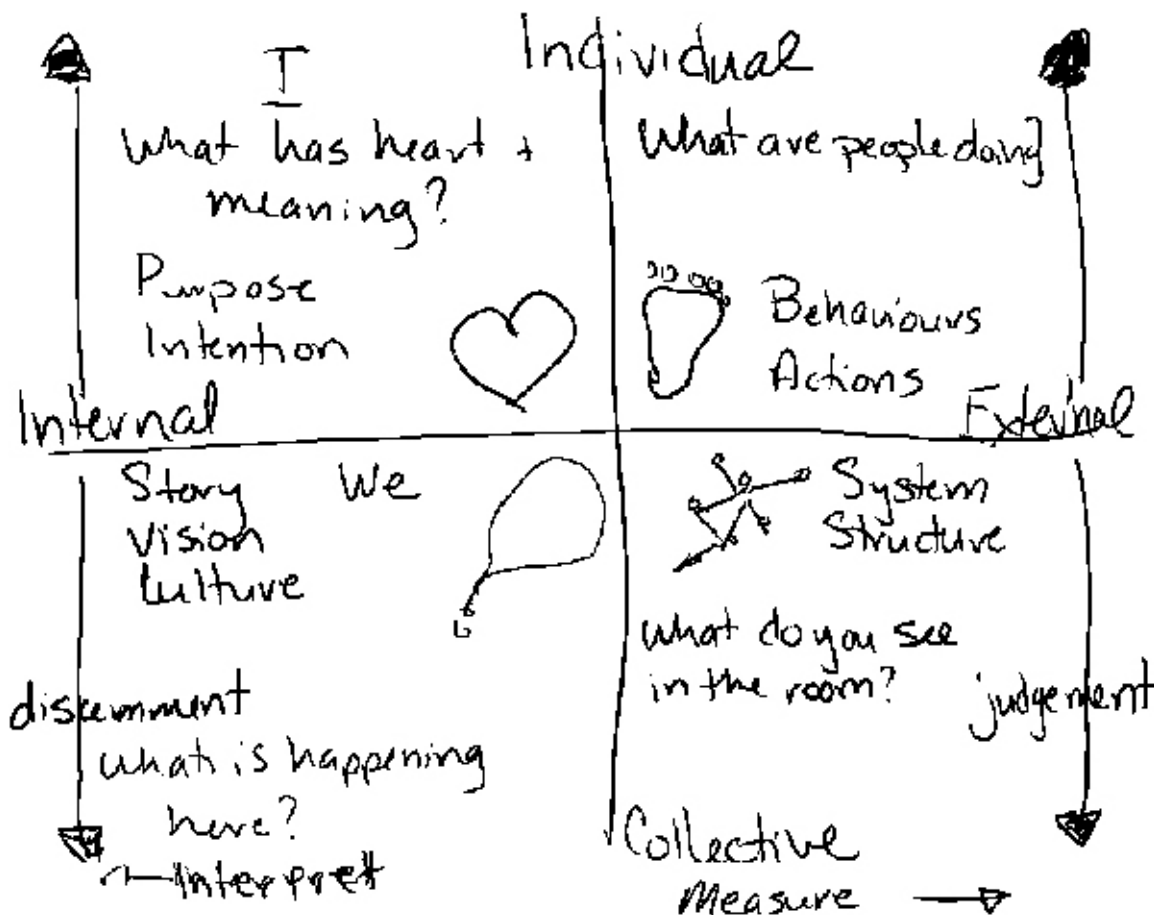 Individual
I
What has heart +
meaning?
Purpose
Intention
What are people doing
Behaviours
Actions
Internal
External
Story
Vision
Culture
We
System
Structure
what do you see
in the room?
discernment
judgement
what is happening
here?
Interpret
Collective
Measure